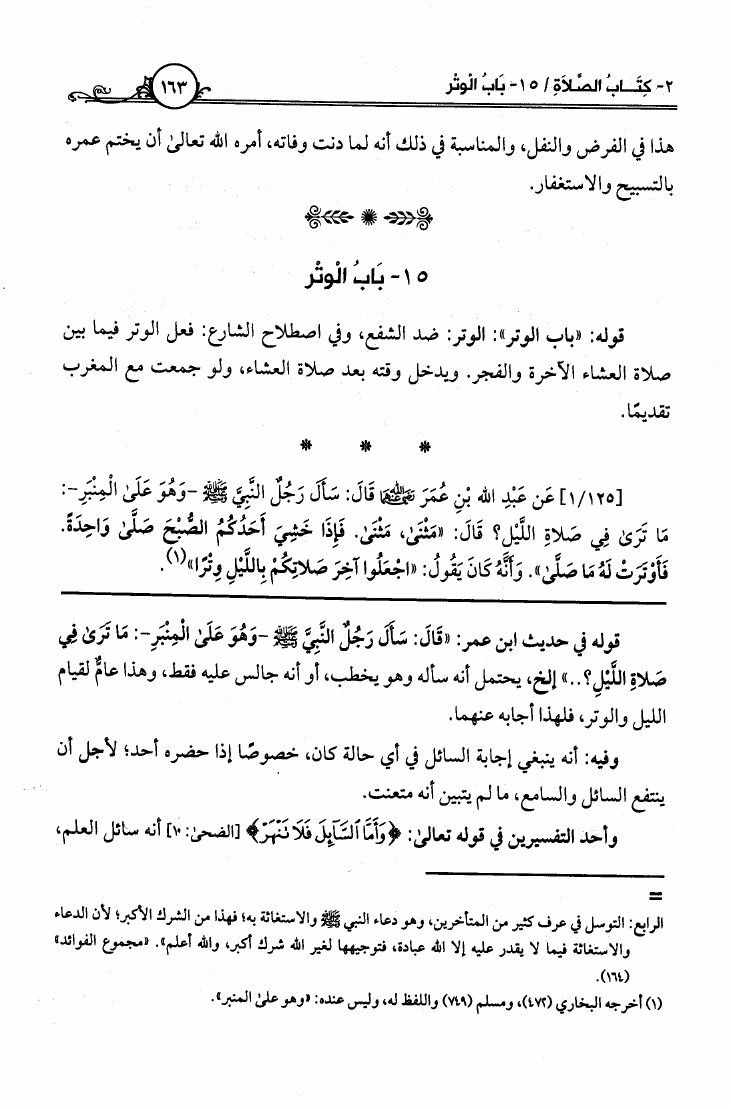 ٢- كِتَـــابُ الصَّلَاةِ / ١٥- بَابُ الْوتْر
١٦٣
هذا في الفرض والنفل، والمناسبة في ذلك أنه لما دنت وفاته، أمره الله تعالىٰ أن يختم عمره
بالتسبيح والاستغفار.
١٥- بَابُ الْوتْر
قوله: «باب الوتر»: الوتر: ضد الشفع، وفي اصطلاح الشارع: فعل الوتر فيما بين
صلاة العشاء الآخرة والفجر. ويدخل وقته بعد صلاة العشاء، ولو جمعت مع المغرب
تقديمًا.
* * *
[١/١٢٥] عَن عَبْدِ الله بْنِ عُمَرَ رَضِيَ اللهُ عَنْهُمَا قَالَ: سَأَلَ رَجُلٌ النَّبِيَّ ﷺ -وَهُوَ عَلَىٰ الْمِنْبَرِ-:
مَا تَرَىٰ فِي صَلَاةِ اللَّيْلِ؟ قَالَ: «مَثْنَىٰ، مَثْنَىٰ. فَإِذَا خَشِيَ أَحَدُكُمُ الصُّبْحَ صَلَّىٰ وَاحِدَةً.
فَأَوْتَرَتْ لَهُ مَا صَلَّىٰ». وَأَنَّهُ كَانَ يَقُولُ: «اجْعَلُوا آخِرَ صَلَاتِكُمْ بِاللَّيْلِ وِتْرًا»(١).
قوله في حديث ابن عمر: «قَالَ: سَأَلَ رَجُلٌ النَّبِيَّ ﷺ -وَهُوَ عَلَىٰ الْمِنْبَرِ-: مَا تَرَىٰ فِي
صَلَاةِ اللَّيْلِ؟..» إلخ، يحتمل أنه سأله وهو يخطب، أو أنه جالس عليه فقط، وهذا عامٌّ لقيام
الليل والوتر، فلهذا أجابه عنهما.
وفيه: أنه ينبغي إجابة السائل في أي حالة كان، خصوصًا إذا حضره أحد؛ لأجل أن
ينتفع السائل والسامع، ما لم يتبين أنه متعنت.
وأحد التفسيرين في قوله تعالىٰ: ﴿وَأَمَّا ٱلسَّآئِلَ فَلَا تَنْهَرْ﴾ [الضحىٰ: ١٠] أنه سائل العلم،
=
الرابع: التوسل في عرف كثير من المتأخرين، وهو دعاء النبي ﷺ والاستغاثة به؛ فهذا من الشرك الأكبر؛ لأن الدعاء
والاستغاثة فيما لا يقدر عليه إلا الله عبادة، فتوجيهها لغير الله شرك أكبر، والله أعلم». «مجموع الفوائد»
(١٦٤).
(١) أخرجه البخاري (٤٧٢)، ومسلم (٧٤٩) واللفظ له، وليس عنده: «وهو علىٰ المنبر».